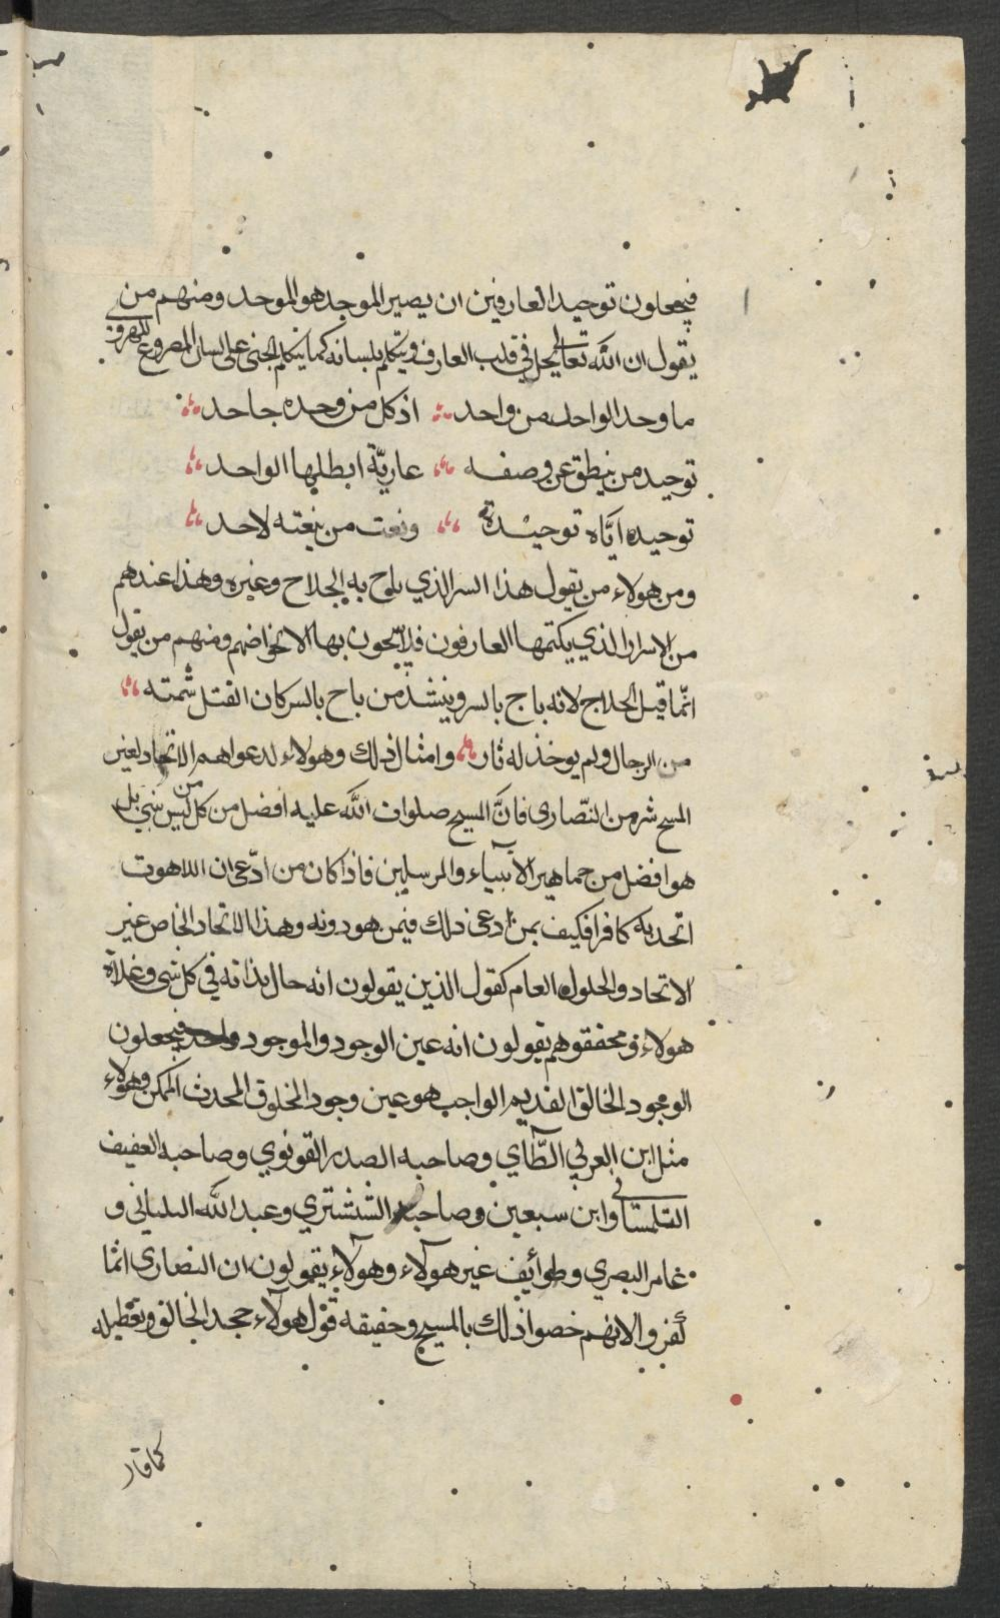 فيجعلون توحيد العارفين ان يصير الموحد هو الموحد ومنهم من
يقول ان الله تعالى يحل في قلب العارف ويتكلم بلسانه كما يتكلم الجني على لسان المصروع
ما وحد الواحد من واحد اذ كل من وحده جاحد
توحيد من ينطق عن وصفه عارية ابطلها الواحد
توحيده اياه توحيده ونعت من ينعته لاحد
ومن هولاء من يقول هذا السر الذي باح به الحلاج وغيره وهذا عندهم
من الاسرار الذي يكتمها العارفون فلا يبحون بها الا لخواضهم ومنهم من يقول
انما قتل الحلاج لانه باح بالسر وينشد من باح بالسر كان القتل شمته
من الرجال ولم يوخذ له ثار وامثال ذلك وهولاء لدعواهم الاتحاد لغير
المسح شر من النصارى فان المسيح صلوات الله عليه افضل من كل من ليس نبي بل
هو افضل من جماهير الانبياء والمرسلين فاذا كان من ادعى ان اللاهوت
اتحد به كافرا فكيف بمن ادعى ذلك فيمن هو دونه وهذا الاتحاد الخاص غير
الاتحاد والحلول العام كقول الذين يقولون انه حال بذاته في كل شي وغلاة
هولاء ومحققوهم يقولون انه عين الوجود والموجود واحد فيجعلون
الوجود الخالق القديم الواجب هو عين وجود المخلوق المحدث الممكن وهولاء
مثل ابن العربي الطاي وصاحبه الصدر القونوي وصاحبه العفيف
التلمساني وابن سبعين وصاحبه الششتري وعبد الله البلياني و
عامر البصري وطوائف غير هولاء وهولاء يقولون ان النصارى انما
كفروا لانهم خصوا ذلك بالمسيح وحقيقه قول هولاء جحد الخالق وتعطيله
كما قال